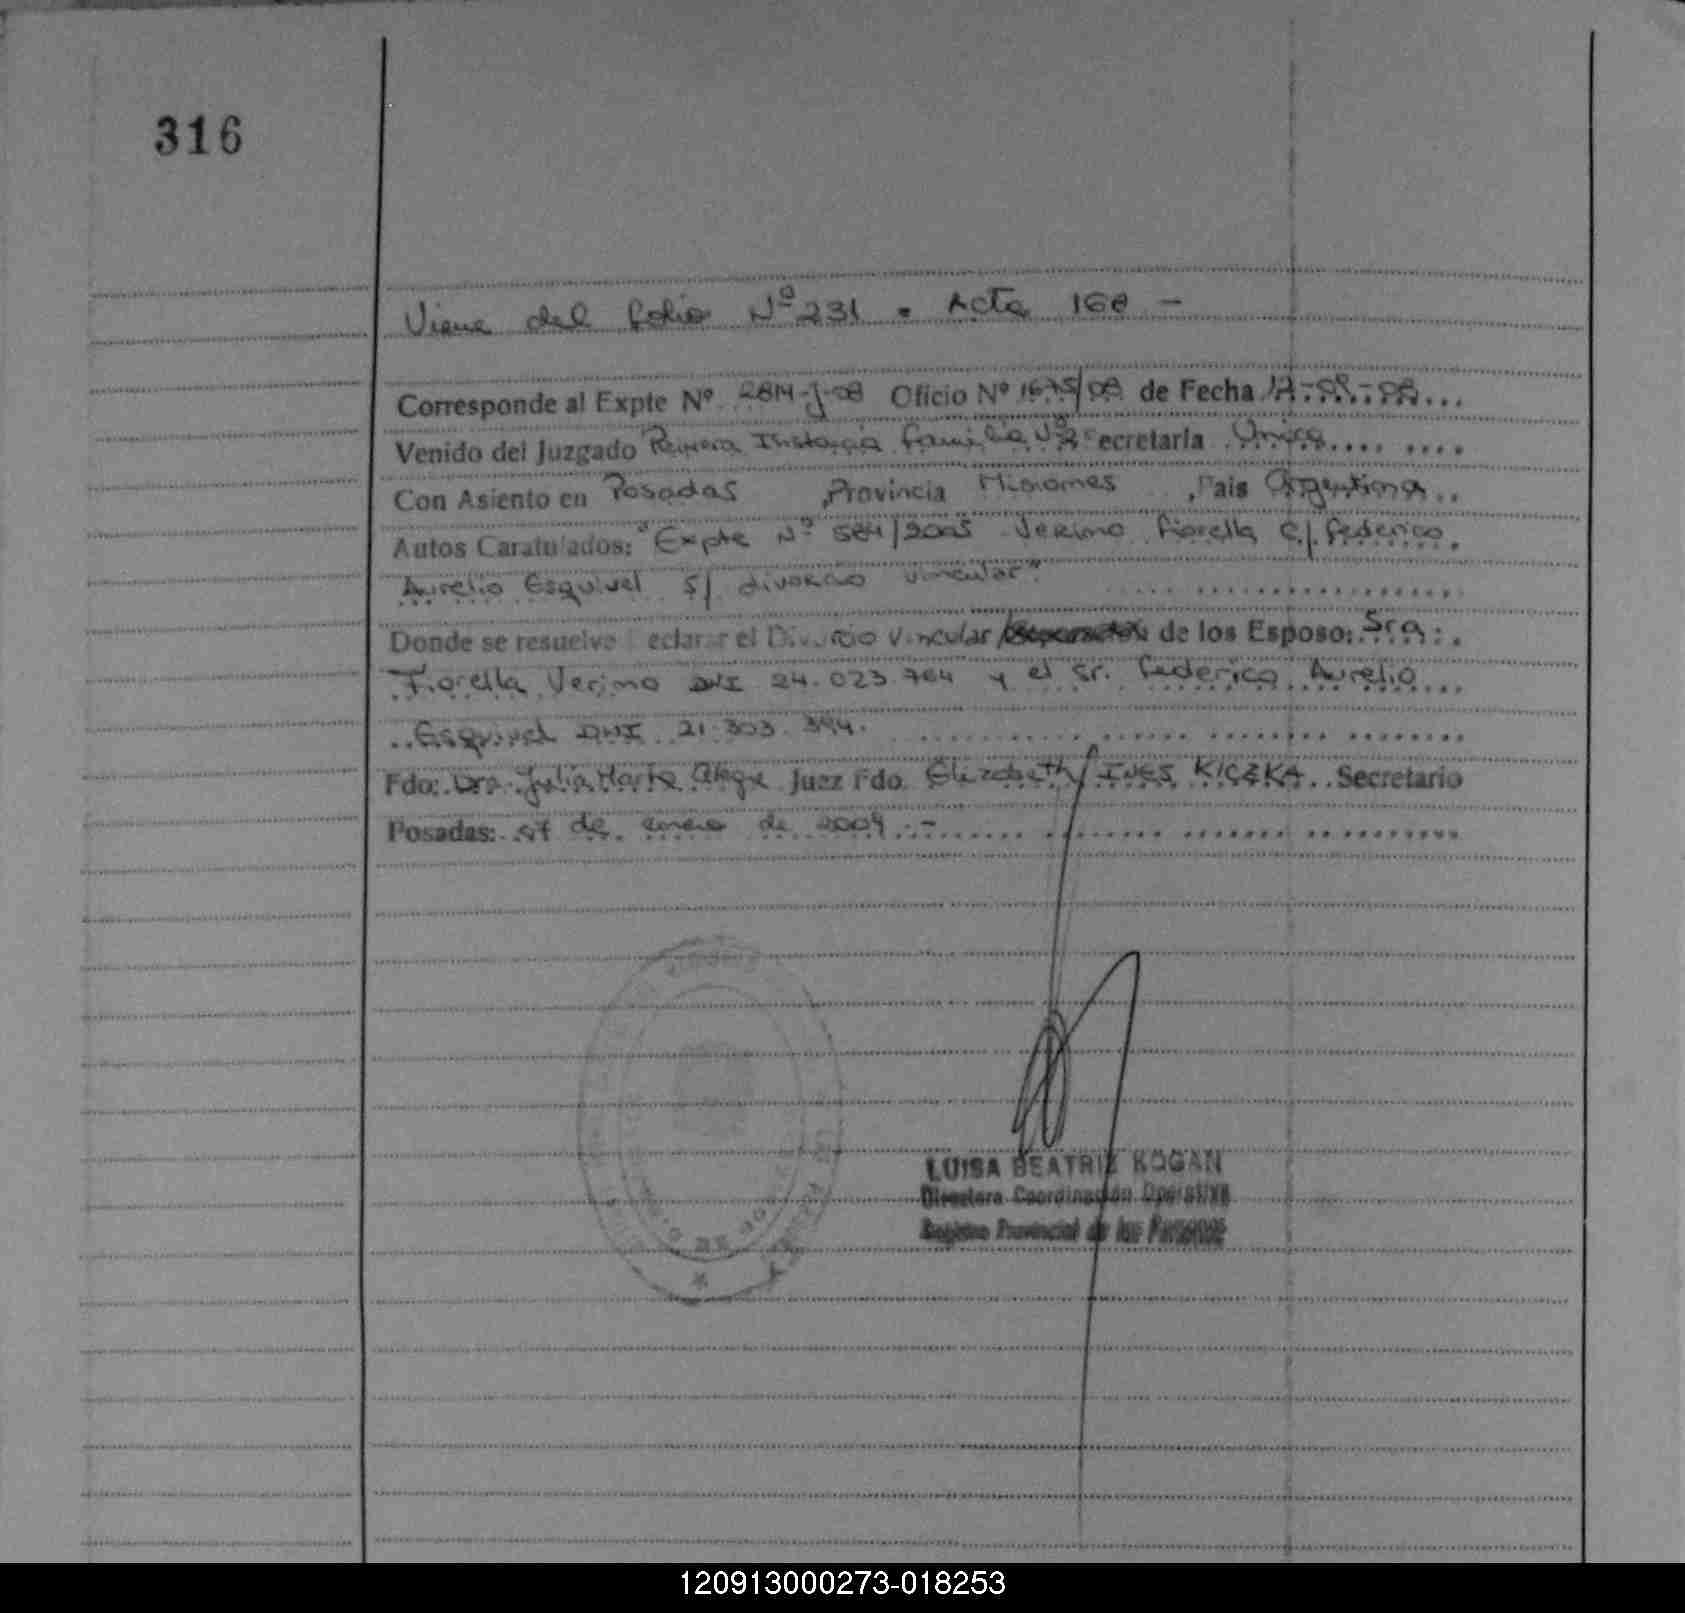 316
Viene del folio Nº 231. Acta 168 -
Corresponde al Expte Nº 2814-J-08 Oficio Nº 1675/08 de Fecha
Venido del Juzgado Primera Instancia Familia Nº 2 ecretaría Unica
Con Asiento en Posadas, Provincia Misiones, Pais Argentina
Autos Caratulados: "Expte Nº 584/2005 Verimo Fiorella C/ Federico
Aurelio Esquivel S/ divorcio vincular".
Donde se resuelve Declarar el Divorcio Vincular/ de los Esposo: Sra.
Fiorella Verimo DNI 24.023.764 y el Sr. Federico Aurelio
Esquivel DNI 21.303.394.
Fdo: Dra. Julia Marta Alegre Juez Fdo. Elizabeth INES KICZKA Secretario
Posadas: de enero de 2009.-
LUISA BEATRIZ KOGAN
Directora Coordinación Operativa
Registro Provincial de las Personas
120913000273-018253